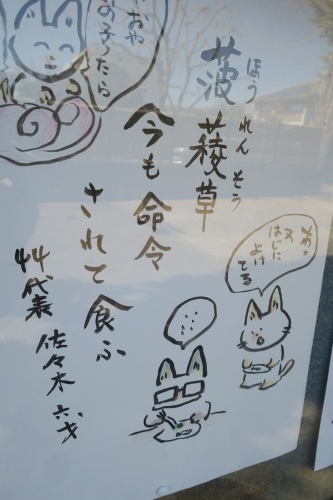 おや
お子たら
菠薐草
ほうれんそう
今も命令
されて食ふ
代表 佐々木 六才
あっ
又
はじに
よけ
てる
.....